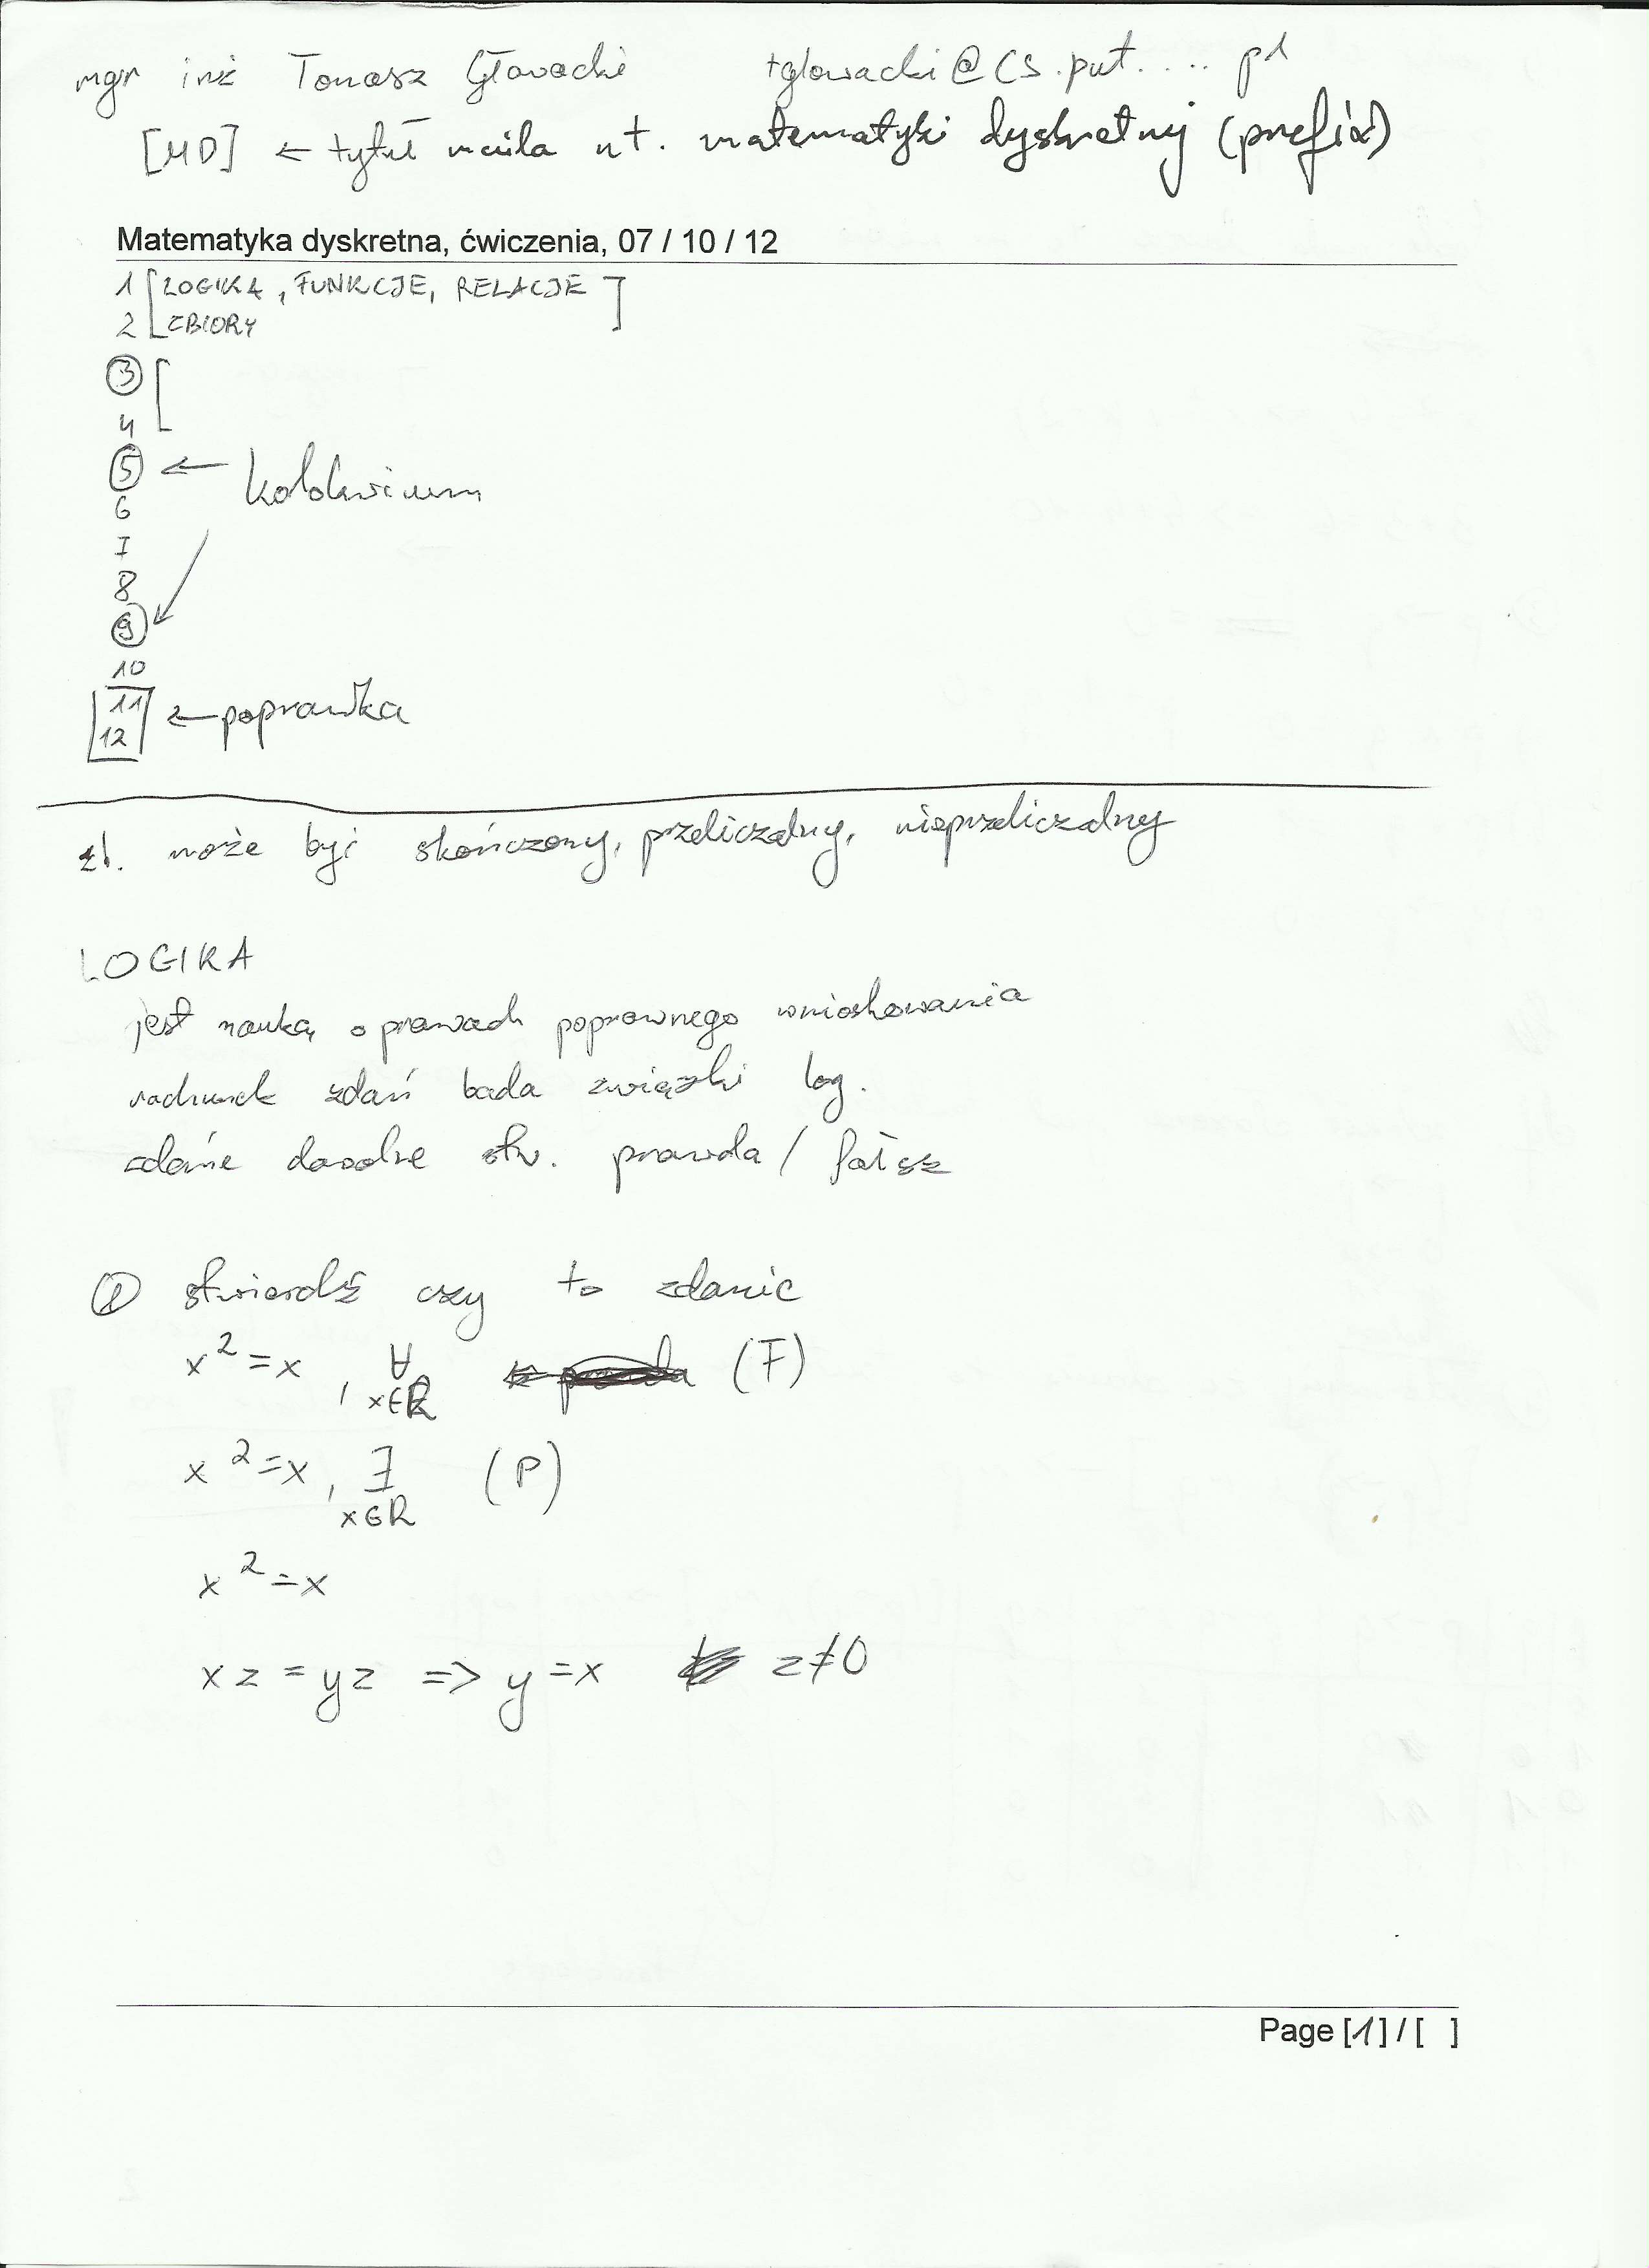 mgr inż Tomasz Głowacki tglowacki@cs.put.... pl
[MD] ← tytuł maila nt. matematyki dyskretnej (prefix)
Matematyka dyskretna, ćwiczenia, 07 / 10 / 12
1 [LOGIKA, FUNKCJE, RELACJE ]
2 ZBIORY
3 [
4
5 ← kolokwium
6
7
8
9
10
11 ← poprawka
12
zb. może być skończony, przeliczalny, nieprzeliczalny
LOGIKA
jest nauką o prawach poprawnego wnioskowania
rachunek zdań bada związki log.
zdanie dowolne stw. prawda / fałsz
① stwierdź czy to zdanie
x² = x , ∀ x∈R (F)
x² = x , ∃ x∈R (P)
x² = x
xz = yz => y = x z≠0
Page [1] / [ ]